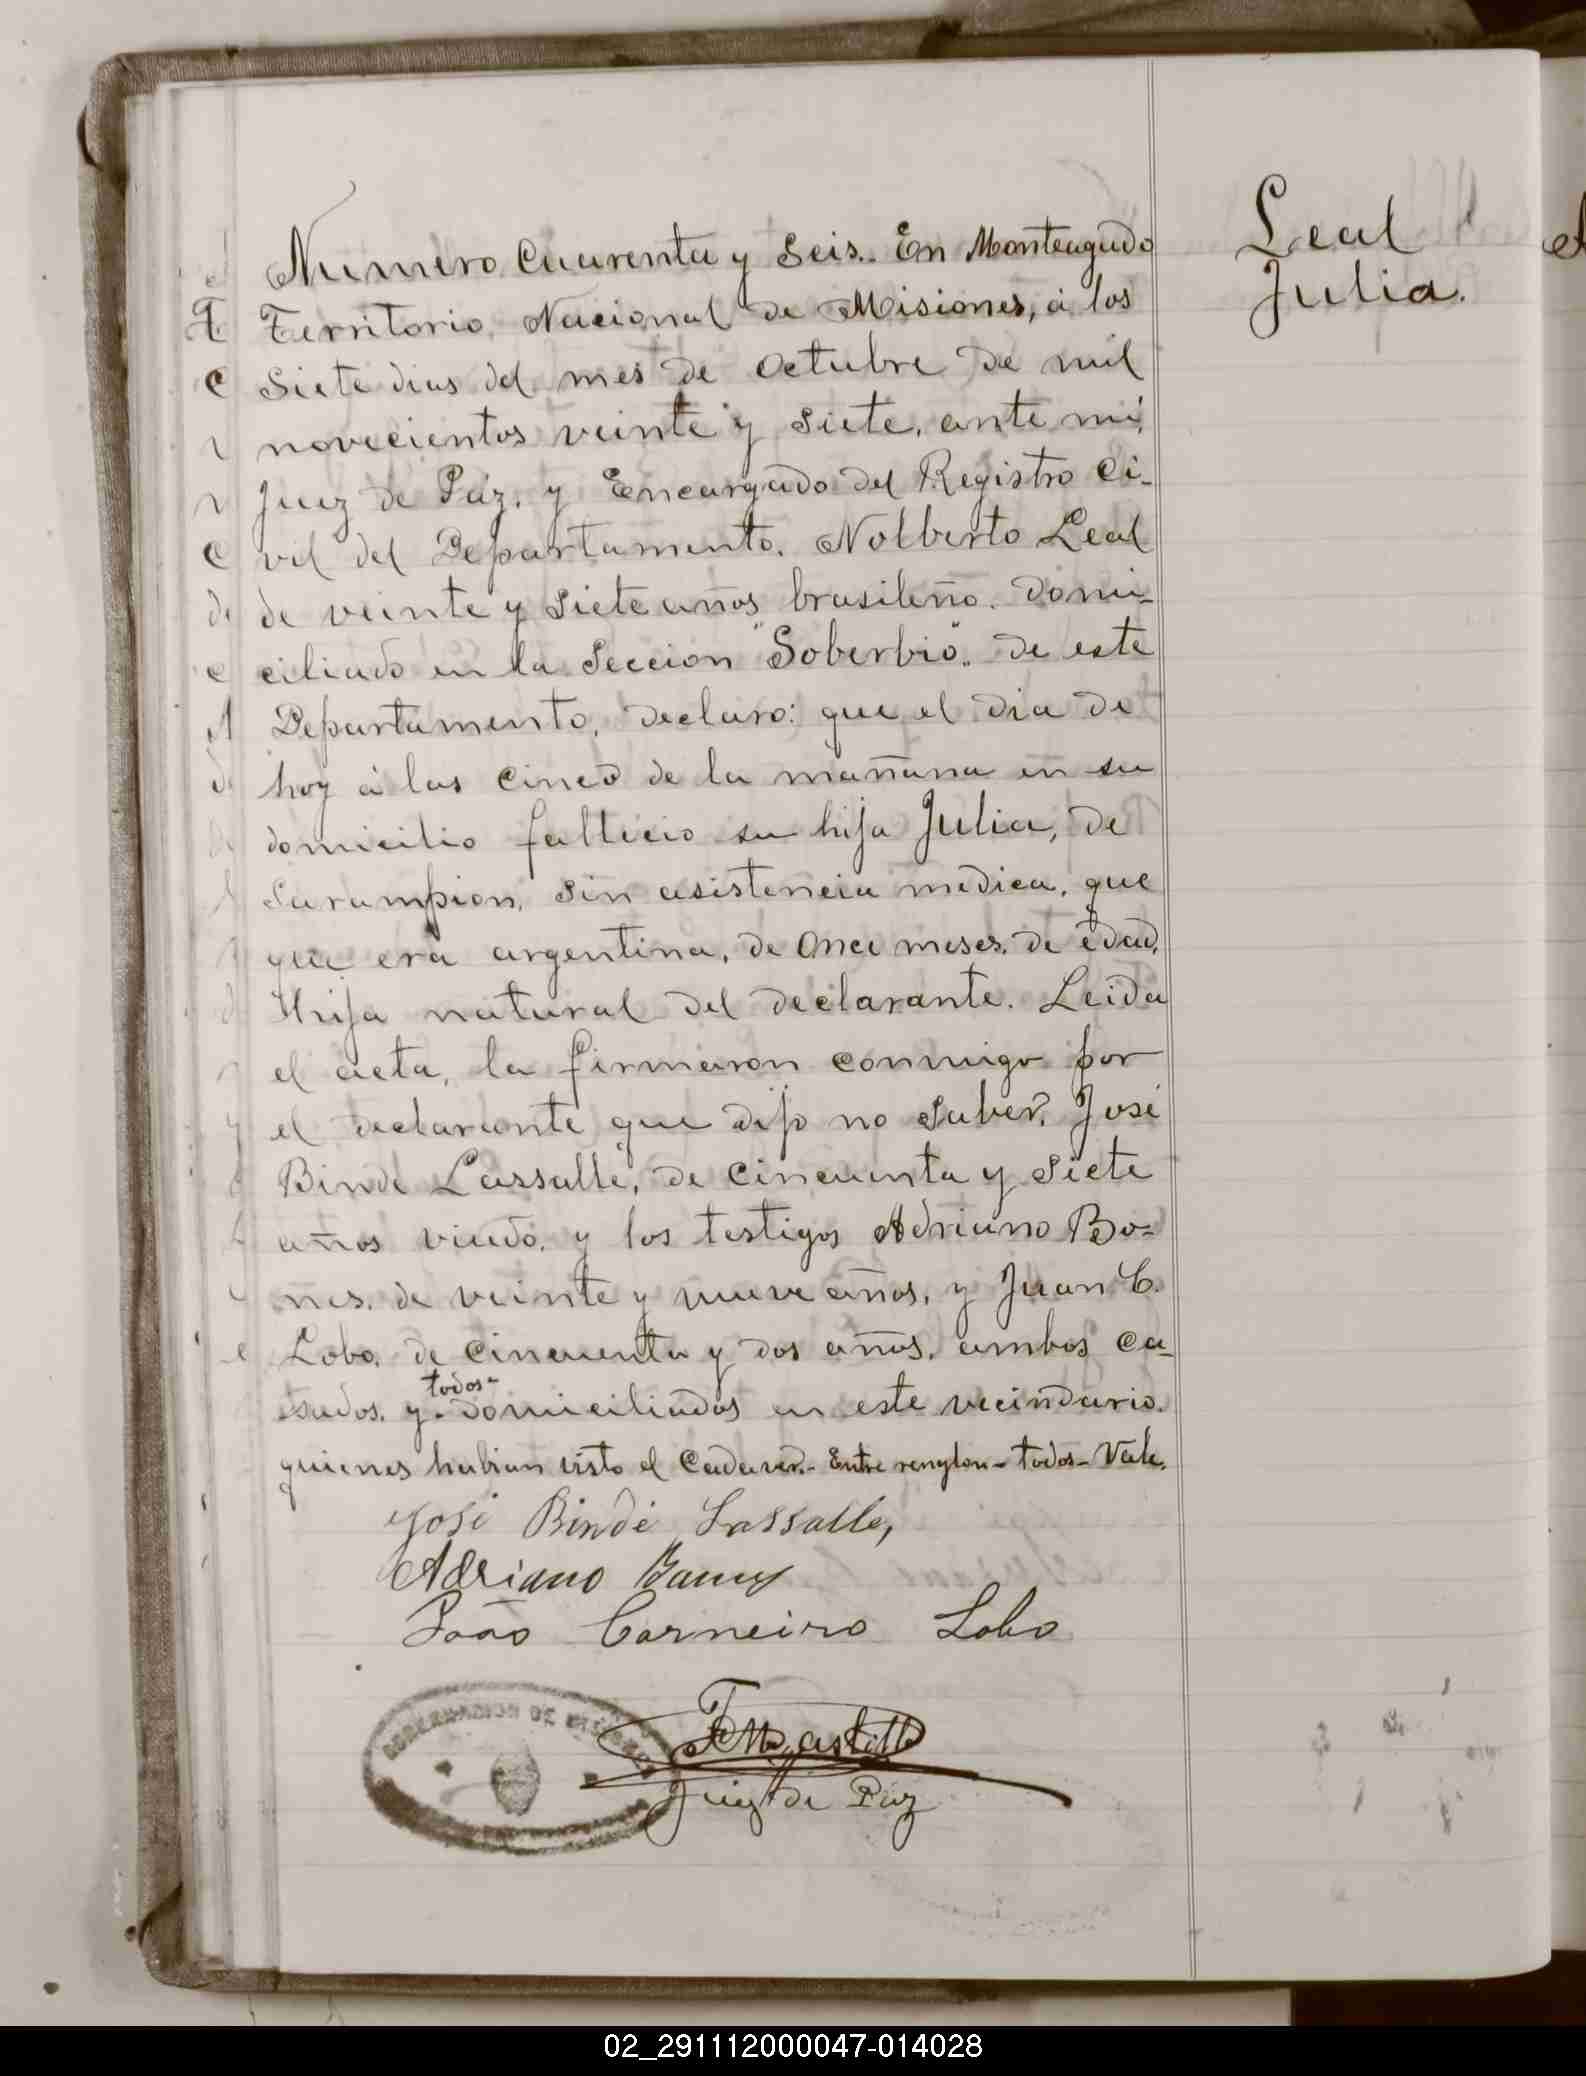 Numero Cuarenta y Seis.. En Monteagudo
Territorio, Nacional de Misiones, á los
Siete dias del mes de Octubre de mil
novecientos veinte y Siete, ante mí,
Juez de Paz, y Encargado del Registro Ci-
vil del Departamento, Nolberto Leal
de veinte y Siete años brasileño. domi-
ciliado en la Seccion "Soberbio". de este
Departamento, declaro: que el dia de
hoy á las cinco de la mañana en su
domicilio fallecio su hija Julia, de
Sarampion, Sin asistencia medica, que
que era argentina, de Once meses, de edad,
Hija natural del declarante. Leida
el acta, la firmaron conmigo por
el declarante que dijo no Saber, José
Bindé Lassalle, de Cincuenta y Siete
años viudo, y los testigos Adriano Bo-
nes, de veinte y nueve años, y Juan C.
Lobo, de Cincuenta y dos años, ambos Ca-
todos-
sados, y domiciliados en este vecindario.
quienes habian visto el Cadaver.- Entre renglon - todos - Vale.
José Bindé Lassalle,
Adriano
João Carneiro Lobo
Juez de Paz
GOBERNACION DE MISIONES
Leal
Julia.
02_291112000047-014028